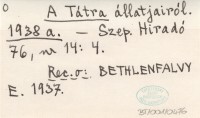 o
A Tátra állatjairól.
1938 a. — Szep. Hiradó
76, nr 14: 4.
Rec. o: BETHLENFALVY
E. 1937.